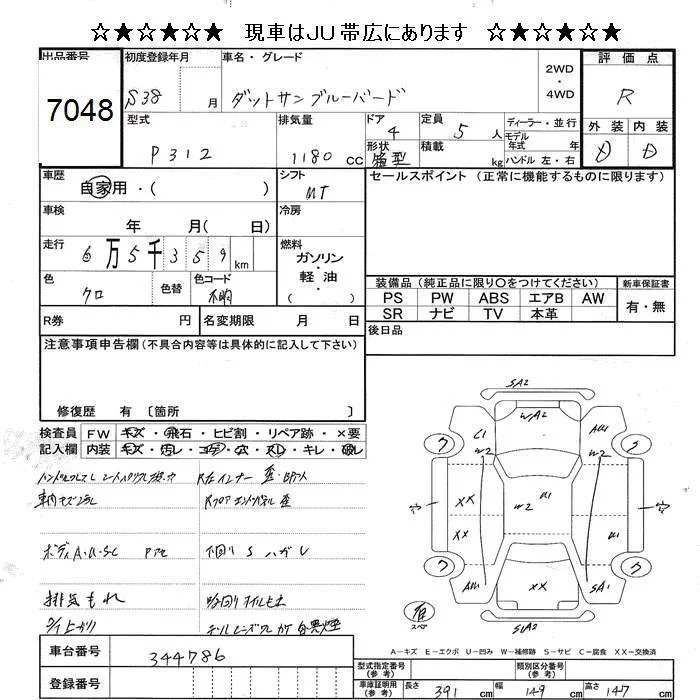 ☆★☆★☆★ 現車はJU帯広にあります ☆★☆★☆★
出品番号
7048
初度登録年月
S38 月
車名・グレード
ダットサン ブルーバード
2WD
4WD
評価点
R
外装 内装
D D
型式
P312
排気量
1180 CC
ドア
4
形状
箱型
定員
5 人
積載
kg
ディーラー・並行
モデル
年式 年
ハンドル 左・右
車歴
自家用・( )
シフト
MT
セールスポイント (正常に機能するものに限ります)
車検
年 月( 日)
冷房
走行
6万5千359 km
燃料
ガソリン
・
軽油
( )
色
クロ
色替
色コード
不明
装備品 (純正品に限り○をつけてください)
新車保証書
PS PW ABS エアB AW
SR ナビ TV 本革
有・無
R券 円
名変期限 月 日
後日品
注意事項申告欄 (不具合内容等は具体的に記入して下さい)
修復歴 有 〔箇所 〕
検査員
記入欄
FW キズ・飛石・ヒビ割・リペア跡・×要
内装 キズ・汚レ・コゲ・穴・スレ・キレ・破レ
ボディA・U・S・C
下回りS ハガレ
排気もれ
SA2
WA2
C1
AU1
W2
W2
XX
XX
W2
U1
U1
AU1
XX
SA1
SUA2
スペア
A－キズ E－エクボ U－凹み W－補修跡 S－サビ C－腐食 XX－交換済
車台番号
344786
登録番号
型式指定番号
(参考)
類別区分番号
(参考)
車庫証明用
(参考)
長さ 391 cm
幅 149 cm
高さ 147 cm